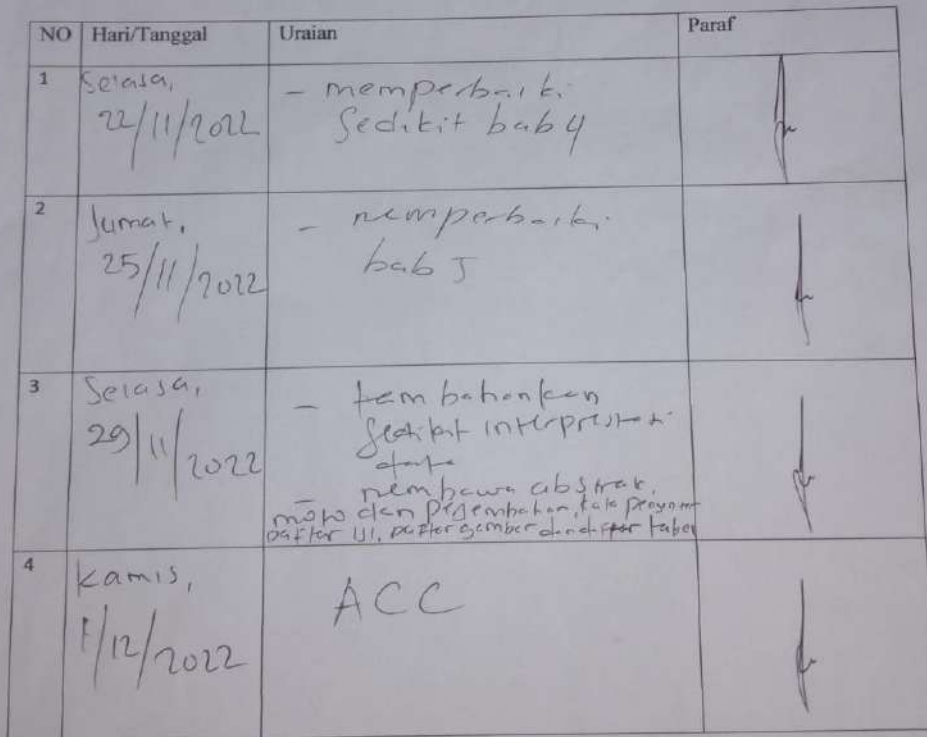 NO Hari/Tanggal Uraian Paraf
1 Selasa,
22/11/2022
- memperbaiki
Sedikit bab 4
2 Jumat,
25/11/2022
- memperbaiki
bab 5
3 Selasa,
29/11/2022
- tambahankan
sedikit interprestasi
data
- membawa abstrak,
moto dan persembahan, kata pengantar
Daftar isi, Daftar gambar dan daftar tabel
4 Kamis,
1/12/2022
ACC